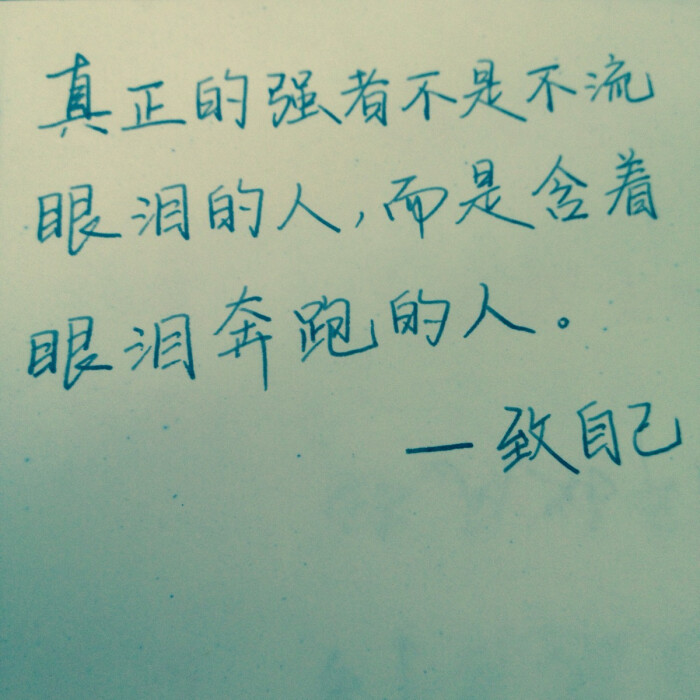 真正的强者不是不流
眼泪的人,而是含着
眼泪奔跑的人。
—致自己